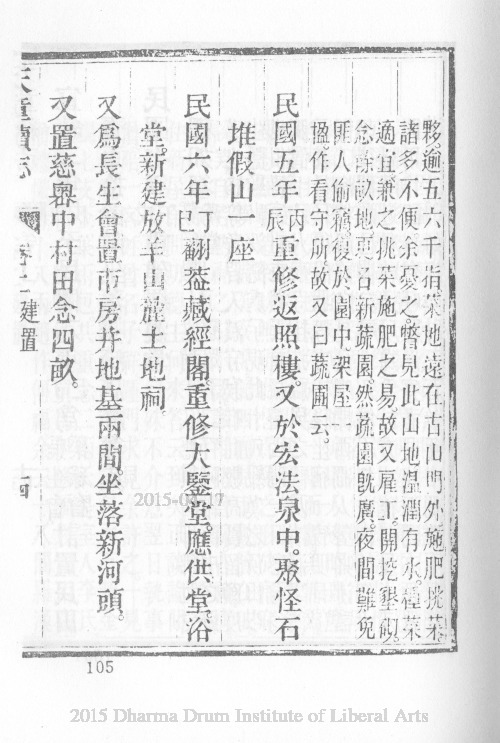 夥。逾五六千指。菜地遠在古山門外。施肥挑菜。
諸多不便。余憂之。瞥見此山地溫潤有水。種菜
適宜。兼之挑菜施肥之易。故又雇工。開挖墾朔。
念餘畝地。更名新蔬園。然蔬園旣廣。夜間難免
匪人偷竊。復於園中。架屋一
楹。作看守所。故又曰蔬圃云。
民國五年丙辰重修返照樓。又於宏法泉中。聚怪石
堆假山一座
民國六年丁巳翻葢藏經閣。重修大鑒堂。應供堂。浴
堂。新建放羊山麓土地祠。
又爲長生會置市房幷地基兩間。坐落新河頭。
又置慈嶴中村田念四畝。
天童續志 卷上 建置
105
2015-04-17
2015 Dharma Drum Institute of Liberal Arts